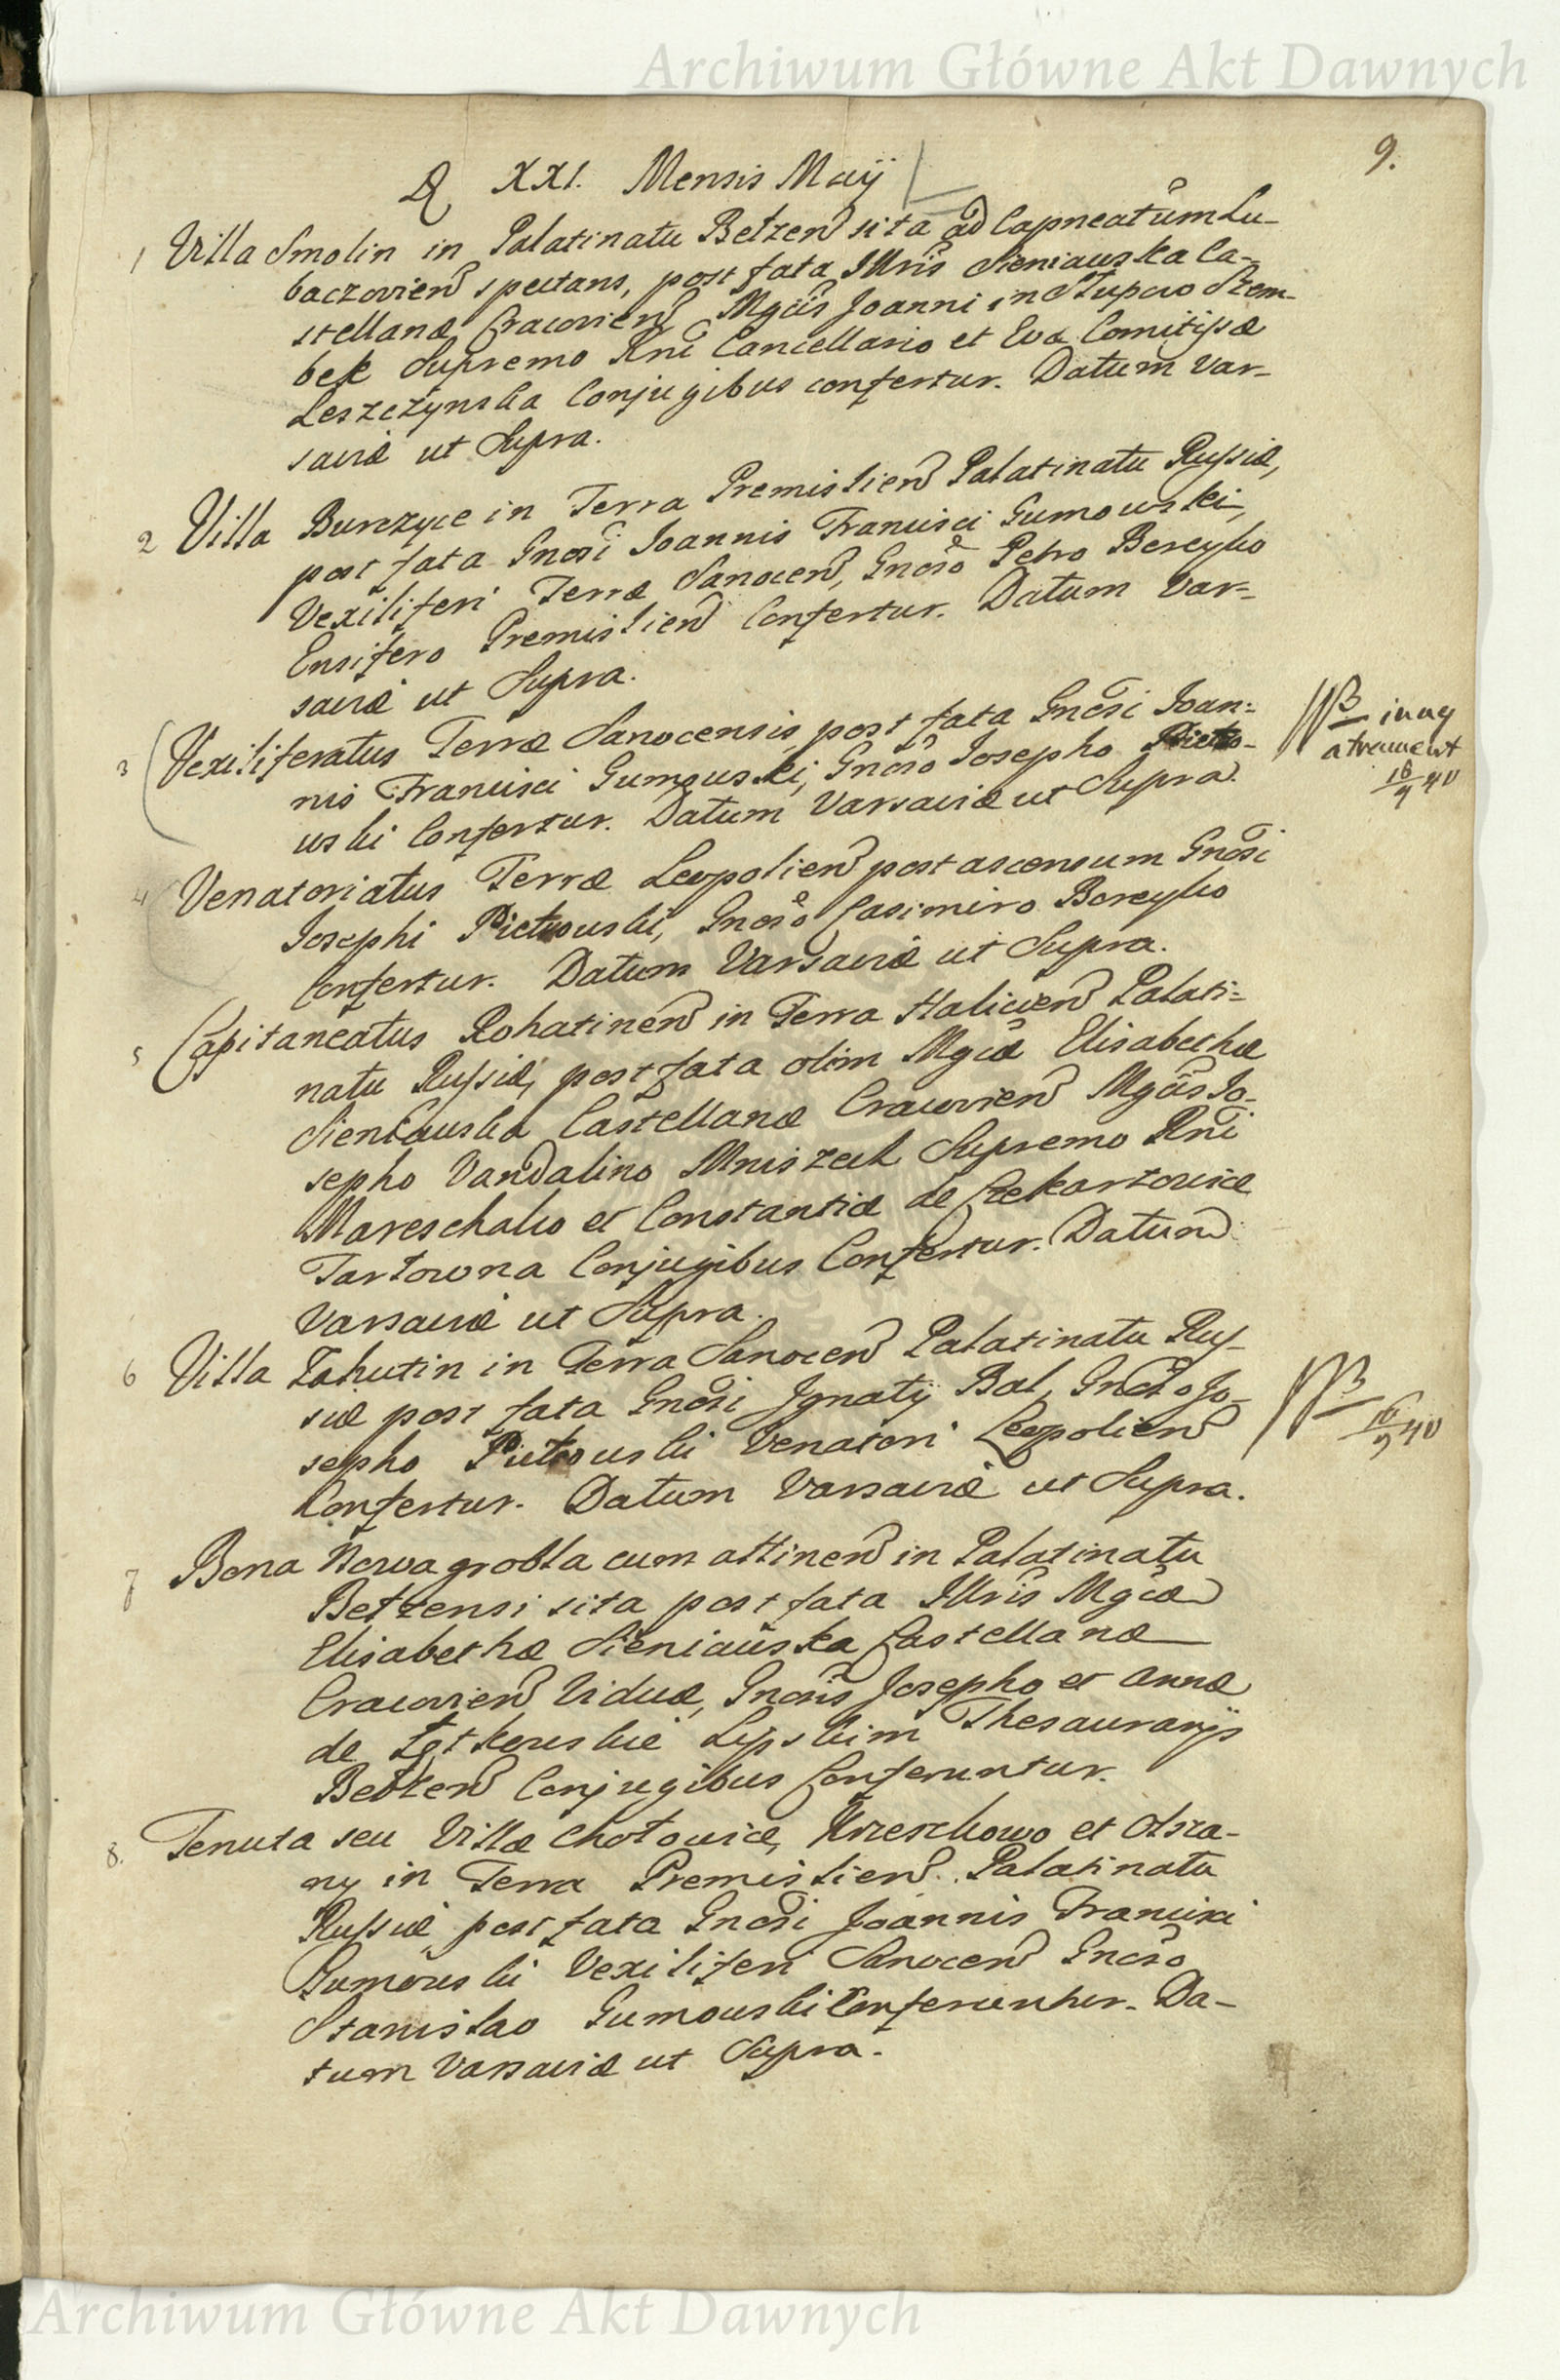 Archiwum Główne Akt Dawnych
9.
D XXI. Mensis Maij
1 Villa Smolin in Palatinatu Betzen sita ad Capneatum Lu-
baczovien spectans, post fata Illris Sieniauska Ca-
stellanæ Cracovien Mgcis Joanni in Słupow Szem-
bek Supremo Rni Cancellario et Eva Comitissæ
Leszczynska Conjugibus confertur. Datum Var-
saviæ ut Supra.
2 Villa Burczyce in Terra Premislien Palatinatu Russiæ,
post fata Gnosi Joannis Francisci Gumowski,
Vexiliferi Terræ Sanocen, Gnoso Petro Boreyko
Ensifero Premislien Confertur. Datum Var-
saviæ ut Supra.
3 Vexiliferatus Terræ Sanocensis post fata Gnosi Joan=
nis Francisci Gumouski, Gnoso Josepho Pietro-
uski Confertur. Datum Varsaviæ ut Supra.
NB inny
atrament
16/9 40
4 Venatoriatus Terræ Leopolien post ascensum Gnosi
Josephi Pietrouski, Gnoso Casimiro Boreyko
Confertur. Datum Varsaviæ ut Supra.
5 Capitaneatus Rohatinen in Terra Halicien Palati=
natu Russiæ, post fata olim Mgcæ Elisabethæ
Sieniauska Castellanæ Cracovien Mgcis Jo-
sepho Vandalino Mniszech Supremo Rni
Mareschalco et Constantiæ de Czekarzouicæ
Tartowna Conjugibus Confertur. Datum
Varsaviæ ut Supra.
6 Villa Zahutin in Terra Sanocen Palatinatu Rus-
siæ post fata Gnosi Ignatij Bal, Gnoso Jo-
sepho Pietrouski Venatori Leopolien
Confertur. Datum Varsaviæ ut Supra.
NB
16/9 40
7 Bona Nowagrobla cum attinen in Palatinatu
Betzensi sita post fata Illris Mgcæ
Elisabethæ Sieniauska Castellanæ
Cracovien Viduæ, Gnosis Josepho et Annæ
de Łętkouskie Lipskim Thesaurarijs
Belzen Conjugibus Conferuntur.
8. Tenuta seu Villæ Chotouice, Krzeschowo et
ny in Terra Premislien. Palatinatu
Russiæ post fata Gnosi Joannis Francisci
Gumouski Vexiliferi Sanocen Gnoso
Stanislao Gumouski Conferuntur. Da-
tum Varsaviæ ut Supra.
Archiwum Główne Akt Dawnych